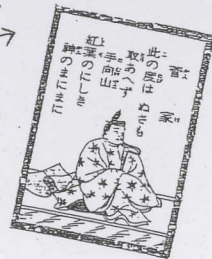 菅家
此の度は ぬさも
取あへず
手向山
紅葉のにしき
神のまにまに